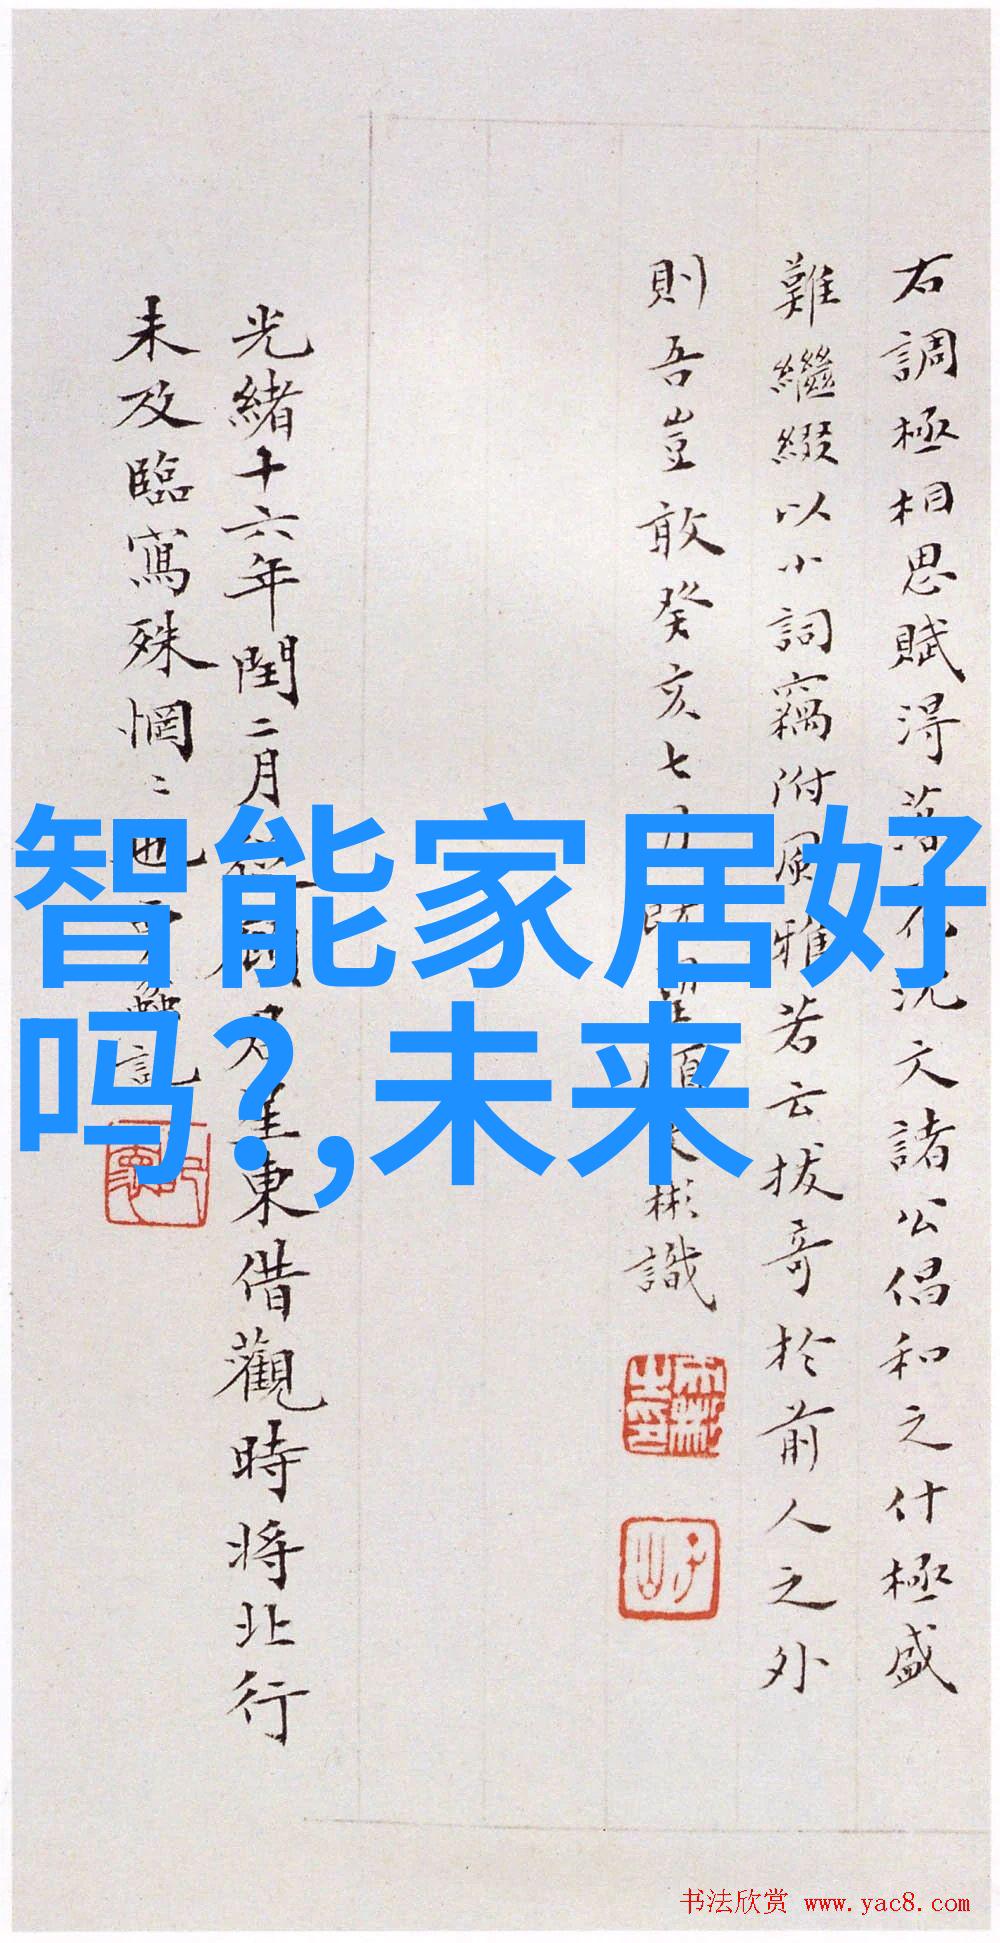 右調極相思賦得落花沉文諸公倡和之什極盛
難繼綴以小詞竊附風雅若云拔奇於前人之外
則吾豈敢癸亥七月
彬識
光緒十六年閏二月
東借觀時將北行
未及臨寫殊惘〻也
記
智能家居好
吗?,未来
书法欣赏 www.yac8.com